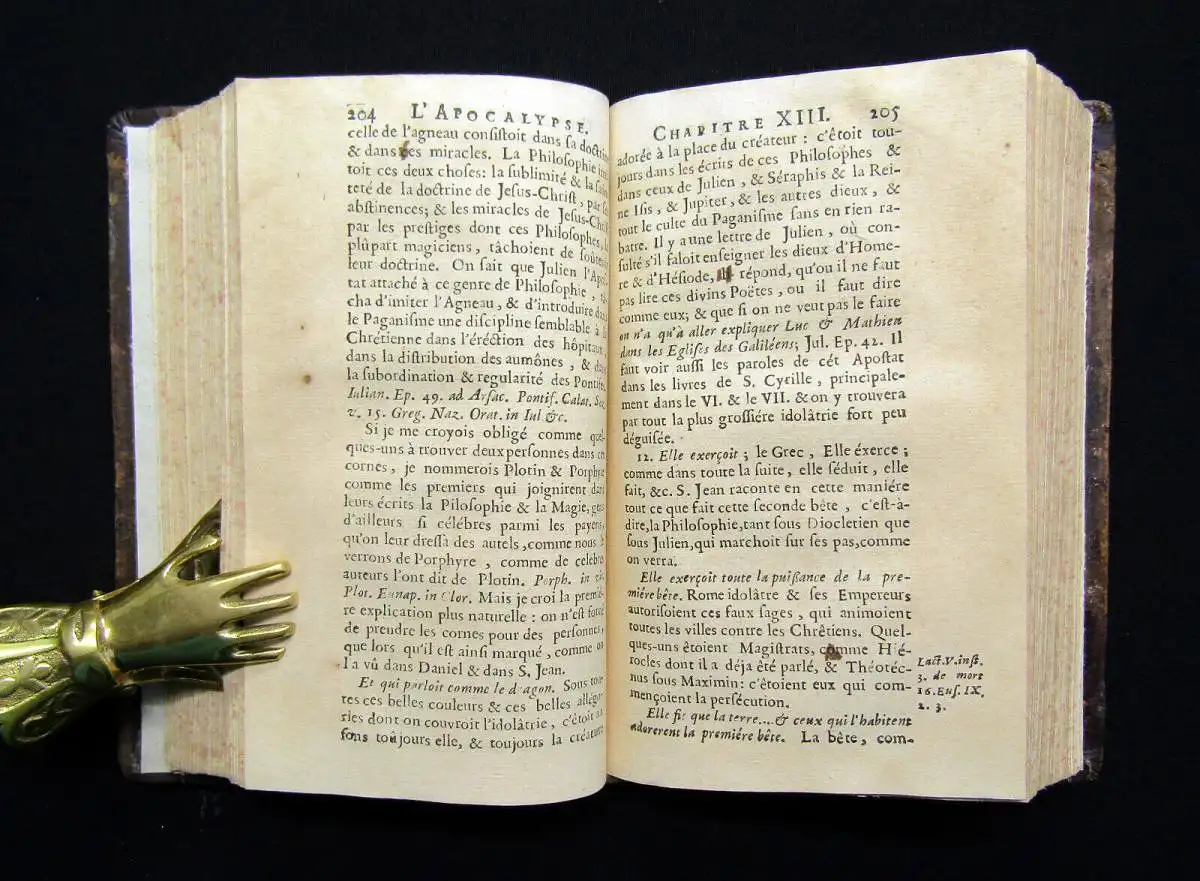 204 L'APOCALYPSE.
celle de l'agneau consiſtoit dans ſa doctrine
& dans ſes miracles. La Philoſophie
toit ces deux choſes: la ſublimité & la
teté de la doctrine de Jesus-Chriſt, par
abſtinences; & les miracles de Jesus-Chriſt
par les preſtiges dont ces Philoſophes,
plûpart magiciens, tâchoient de ſoûtenir
leur doctrine. On ſait que Julien l'Apoſ-
tat attaché à ce genre de Philoſophie,
cha d'imiter l'Agneau, & d'introduire dans
le Paganiſme une diſcipline ſemblable à la
Chrétienne dans l'éréction des hôpitaux,
dans la diſtribution des aumônes, & dans
la ſubordination & regularité des Pontifes.
Iulian. Ep. 49. ad Arſac. Pontif. Calat.
v. 15. Greg. Naz. Orat. in Iul &c.
Si je me croyois obligé comme quel-
ques-uns à trouver deux perſonnes dans ces
cornes, je nommerois Plotin & Porphyre
comme les premiers qui joignirent dans
leurs écrits la Piloſophie & la Magie, gens
d'ailleurs ſi célébres parmi les payens,
qu'on leur dreſſa des autels, comme nous
verrons de Porphyre, comme de celebres
auteurs l'ont dit de Plotin. Porph. in vit.
Plot. Eunap. in Clor. Mais je croi la premié-
re explication plus naturelle: on n'eſt forcé
de prendre les cornes pour des perſonnes,
que lors qu'il eſt ainſi marqué, comme on
l'a vû dans Daniel & dans S. Jean.
Et qui parloit comme le dragon. Sous toutes
ces belles couleurs & ces belles allégo-
ries dont on couvroit l'idolâtrie, c'étoit
ſons toûjours elle, & toujours la créature
CHAPITRE XIII. 205
adorée à la place du créateur: c'étoit tou-
jours dans les écrits de ces Philoſophes &
dans ceux de Julien, & Séraphis & la Rei-
ne Iſis, & Jupiter, & les autres dieux, &
tout le culte du Paganiſme ſans en rien ra-
batre. Il y a une lettre de Julien, où con-
ſulté s'il faloit enſeigner les dieux d'Home-
re & d'Héſiode, il répond, qu'ou il ne faut
pas lire ces divins Poëtes, ou il faut dire
comme eux; & que ſi on ne veut pas le faire
on n'a qu'à aller expliquer Luc & Mathieu
dans les Egliſes des Galiléens; Jul. Ep. 42. Il
faut voir auſſi les paroles de cét Apoſtat
dans les livres de S. Cyrille, principale-
ment dans le VI. & le VII. & on y trouvera
par tout la plus groſſiére idolâtrie fort peu
déguiſée.
12. Elle exerçoit; le Grec, Elle éxerce;
comme dans toute la ſuite, elle ſéduit, elle
fait, &c. S. Jean raconte en cette maniére
tout ce que fait cette ſeconde bête, c'eſt-à-
dire, la Philoſophie, tant ſous Diocletien que
ſous Julien, qui marchoit ſur ſes pas, comme
on verra.
Elle exerçoit toute la puißance de la pre-
miére bête. Rome idolâtre & ſes Empereurs
autoriſoient ces faux ſages, qui animoient
toutes les villes contre les Chrêtiens. Quel-
ques-uns étoient Magiſtrats, comme Hié-
rocles dont il a déja été parlé, & Théotéc-
nus ſous Maximin: c'étoient eux qui com-
mençoient la perſécution.
Lact. V. inſt.
3. de mort
16. Euſ. IX,
2. 3.
Elle fit que la terre....& ceux qui l'habitent
adorerent la premiére bête. La bête, com-